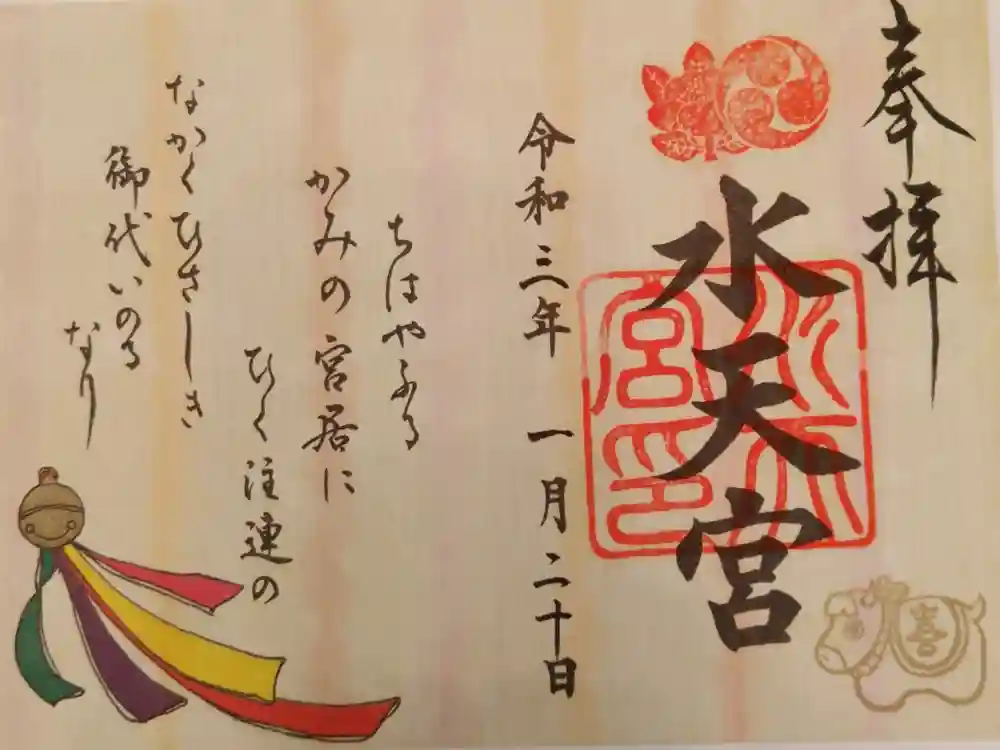 奉拝
水天宮
水天宮印
喜
令和三年 一月二十日
ちはやふる
かみの宮居に
ひく注連の
なかくひさしき
御代いのる
なり